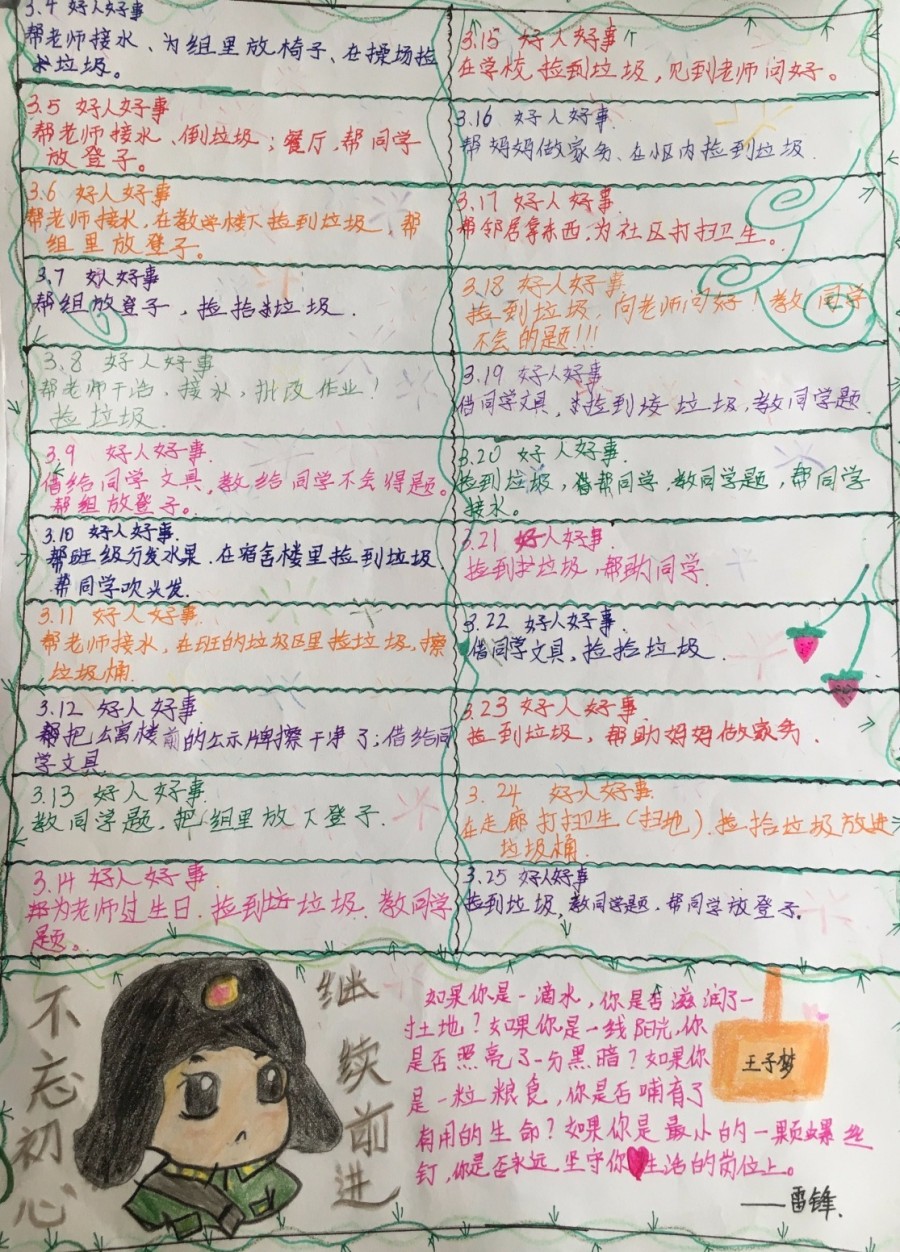 3.4 好人好事
帮老师接水、为组里放椅子、在操场捡
垃圾。
3.5 好人好事
帮老师接水、倒垃圾；餐厅,帮同学
放登子。
3.6 好人好事
帮老师接水,在教学楼下捡到垃圾,帮
组里放登子。
3.7 好人好事
帮组放登子，捡拾垃圾.
3.8 好人好事
帮老师干活.接水，批改作业！
捡垃圾.
3.9 好人好事.
借给同学文具,教给同学不会得题。
帮组放登子。
3.10 好人好事.
帮班级分发水果.在宿舍楼里捡到垃圾.
帮同学吹头发.
3.11 好人好事.
帮老师接水,在班的垃圾区里捡垃圾,擦
垃圾桶.
3.12 好人好事.
帮把公寓楼前的公示牌擦干净了;借给同
学文具.
3.13 好人好事.
教同学题,把组里放下登子.
3.14 好人好事.
为老师过生日.捡到垃圾.教同学
题。
3.15 好人好事
在学校,捡到垃圾，见到老师问好。
3.16 好人好事.
帮妈妈做家务、在小区内捡到垃圾.
3.17 好人好事.
帮邻居拿东西.为社区打扫卫生。
3.18 好人好事
捡到垃圾,向老师问好！教同学
不会的题!!!
3.19 好人好事
借同学文具,捡到垃圾,教同学题.
3.20 好人好事.
捡到垃圾,帮同学,教同学题，帮同学
接水。
3.21 好人好事.
捡到垃圾,帮助同学.
3.22 好人好事.
借同学文具,捡拾垃圾.
3.23 好人好事.
捡到垃圾，帮助妈妈做家务.
3.24 好人好事.
在走廊打扫卫生(扫地).捡拾垃圾放进
垃圾桶.
3.25 好人好事
捡到垃圾,教同学题.帮同学放登子.
不忘初心
继续前进
如果你是一滴水，你是否滋润了一
寸土地？如果你是一线阳光,你
是否照亮了一分黑暗？如果你
是一粒粮食，你是否哺育了
有用的生命？如果你是最小的一颗螺丝
钉,你是否永远坚守你生活的岗位上。
——雷锋.
王子梦